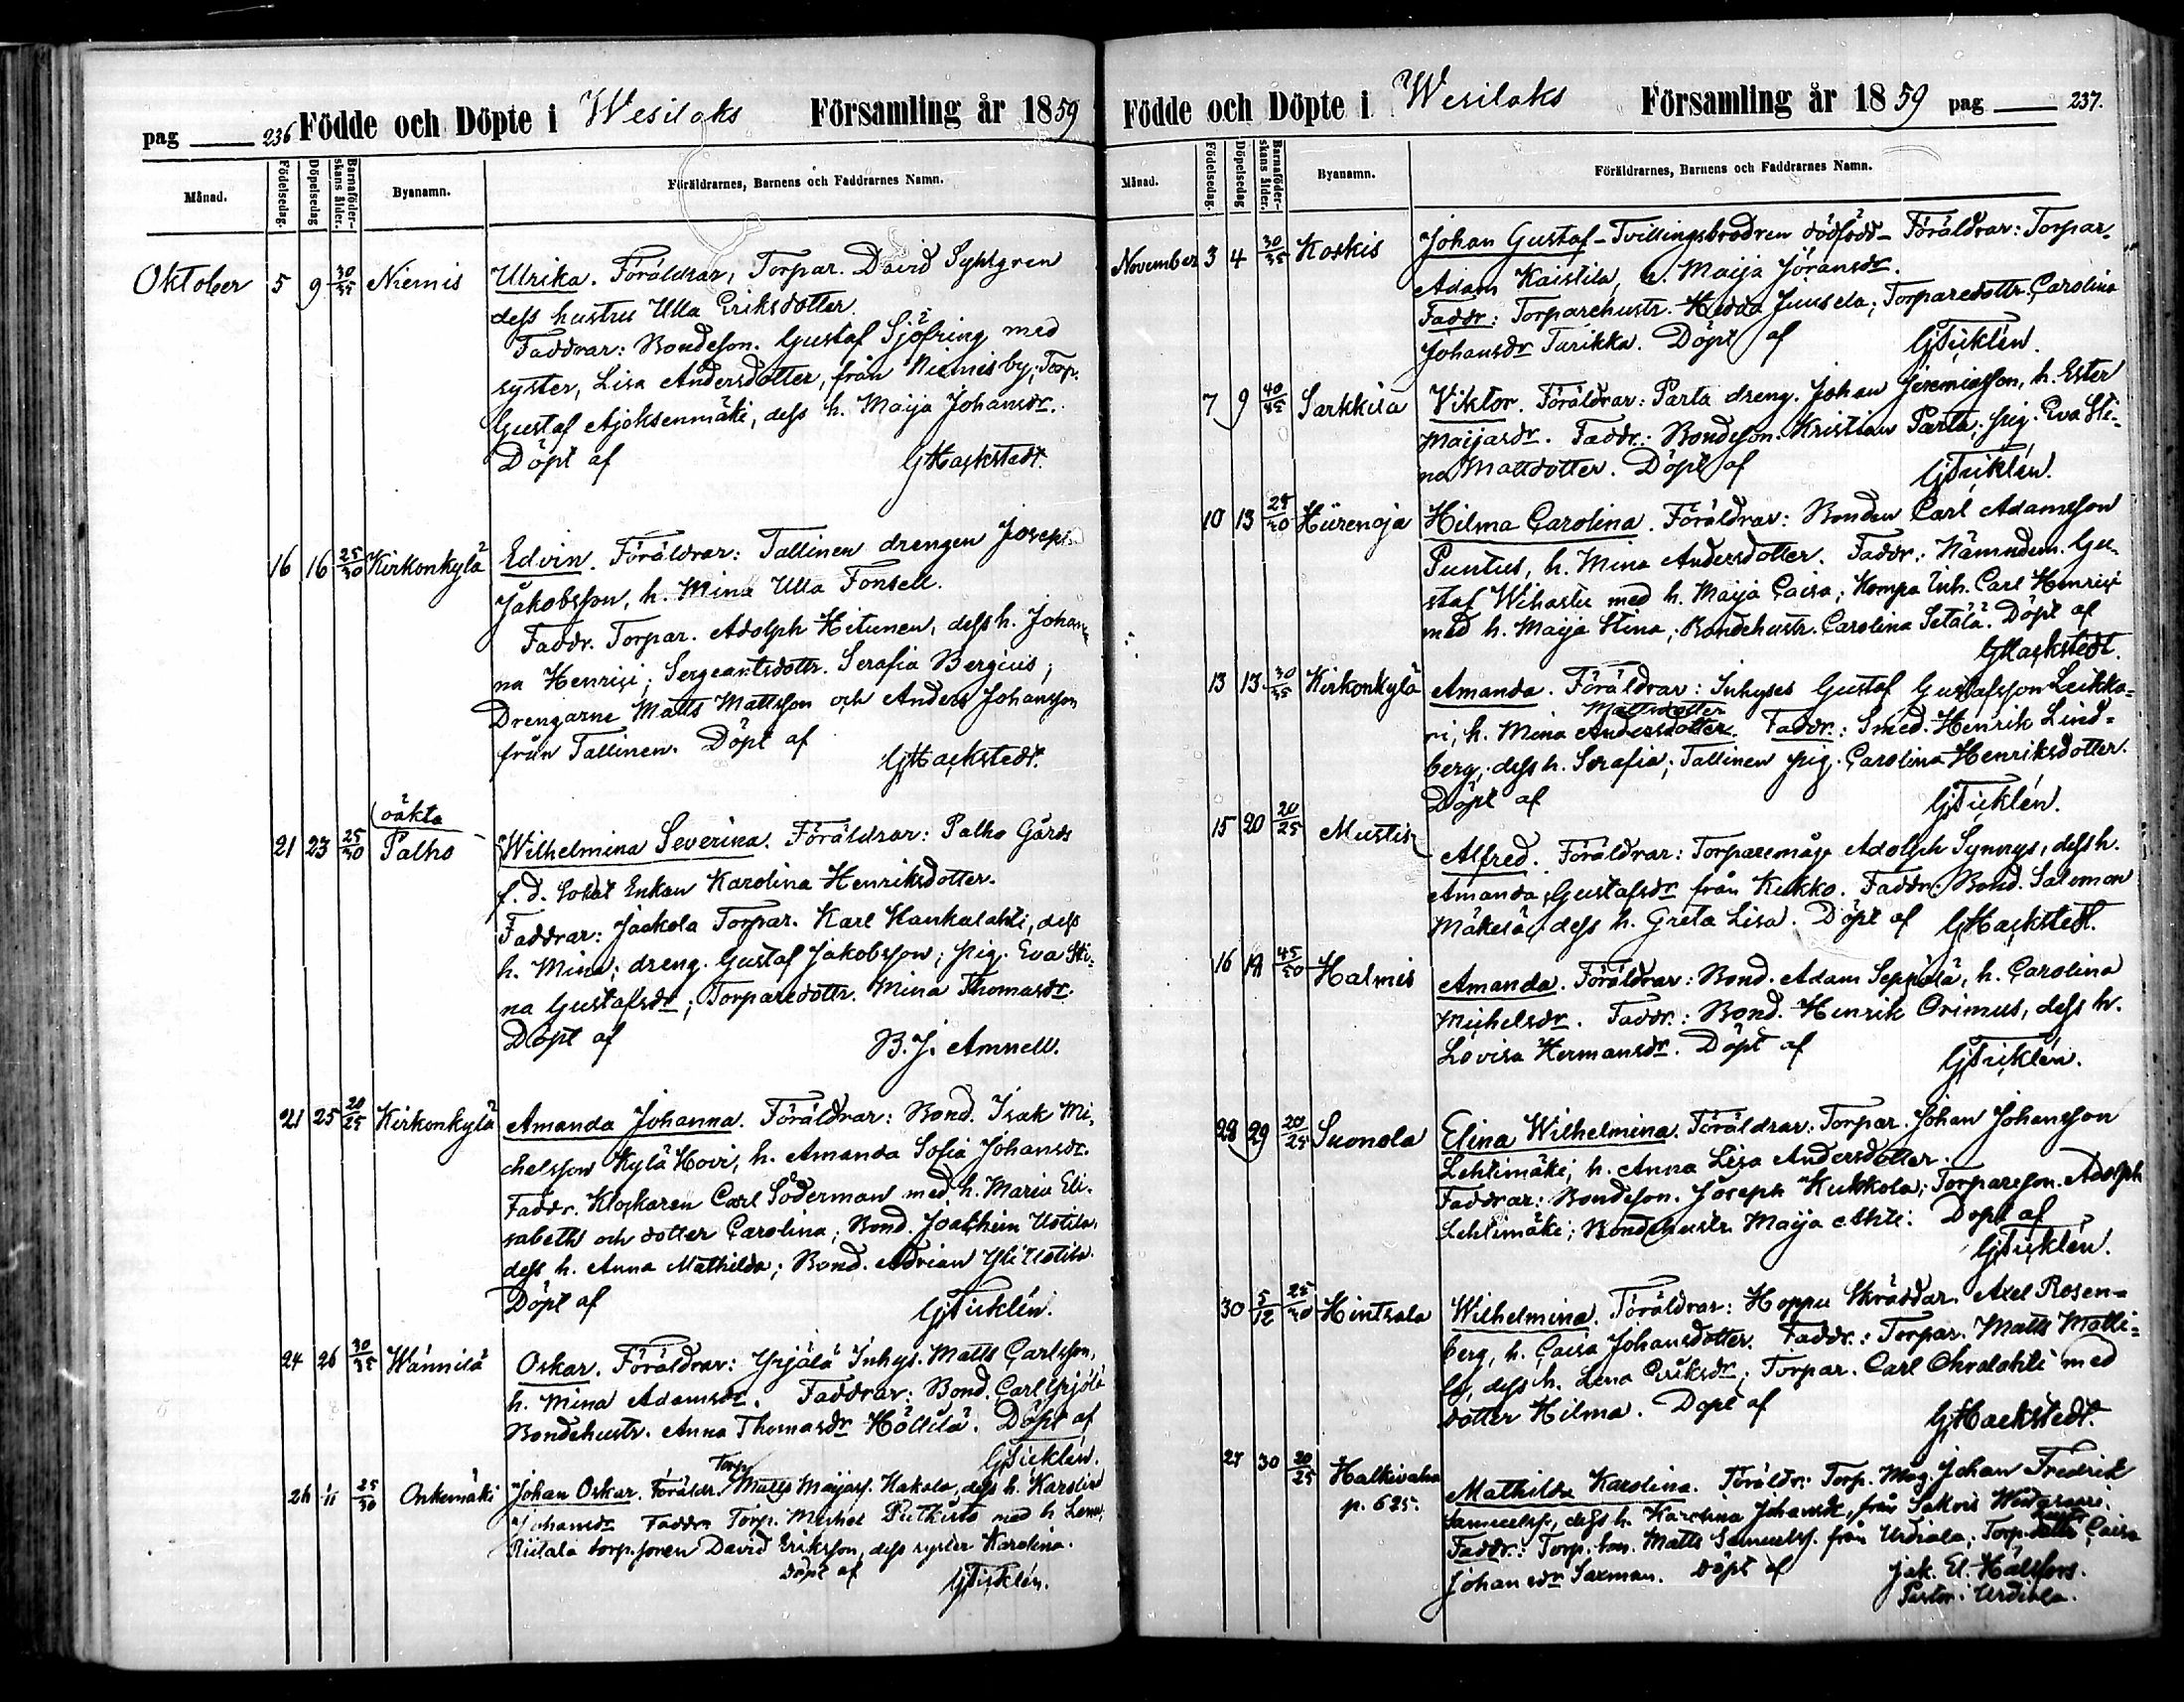 pag 236 Födde och Döpte i Wesilaks Församling år 1859
Månad. Födelsedag. Döpelsedag Barnaföder-skans ålder. Byanamn. Föräldrarnes, Barnens och Faddrarnes Namn.
Oktober 5 9 30/35 Niemis Ulrika. Föräldrar, Torpar. David Syhlgren
dess hustru Ulla Eriksdotter.
Faddrar: Bondeson. Gustaf Sjöfring med
syster, Lisa Andersdotter, från Niemis by; Torp.
Gustaf Ajoksenmäki, dess h. Maija Johansdr.
Döpt af GHackstedt.
16 16 25/30 Kirkonkylä Edvin. Föräldrar: Tallinen drengen Josep
Jakobsson, h. Mina Ulla Fonsell.
Faddr. Torpar. Adolph Hitunen, dess h. Johan
na Henrici; Sergeantsdottr. Serafia Bergius;
Drengarne Matts Mattsson och Anders Johansson
från Tallinen. Döpt af GHackstedt.
oäkta
21 23 25/30 Palho Wilhelmina Severina. Föräldrar: Palho Gårds
f. d. Enkan Karolina Henriksdotter.
Faddrar: Jaakola Torpar. Karl Kankalahti, dess
h. Mina; dreng. Gustaf Jakobsson; pig. Eva Sti-
na Gustafsdr; Torparedottr. Mina Thomasdr.
Döpt af B. J. Amnell.
21 25 20/25 Kirkonkylä Amanda Johanna. Föräldrar: Bond. Isak Mi-
chelsson Kylä Hovi, h. Amanda Sofia Johansdr.
Faddr. Klockaren Carl Söderman med h. Maria Eli-
sabeth och dotter Carolina; Bond. Joachim Uotila,
dess h. Anna Mathilda; Bond. Adrian Yli Uotila.
Döpt af GTicklén.
24 26 30/35 Wännilä Oskar. Föräldrar: Yrjälä Inhys. Matts Carlsson,
h. Mina Adamsdr. Faddrar: Bond. Carl Yrjölä
Bondehustr. Anna Thomasdr Höllilä. Döpt af
GTicklén.
26 1/11 25/30 Onkemäki Johan Oskar. Föräldr. Torp. Matts Maijass. Hakala, dess h. Karolina
Johansdr Faddr. Torp. Michel Putkisto med h Lena,
Riitala torp.sonen David Eriksson, dess syster Karolina.
Döpt af GTicklén.
Födde och Döpte i Wesilaks Församling år 1859 pag 237.
Månad. Födelsedag. Döpelsedag Barnaföder-skans ålder. Byanamn. Föräldrarnes, Barnens och Faddrarnes Namn.
November 3 4 30/35 Koskis Johan Gustaf – Tvillingsbrodren dödfödd – Föräldrar: Torpar.
Adam Kaistila, h. Maija Jöransdr.
Faddr: Torparehustr. Hedda Juusela; Torparedottr. Carolina
Johansdr Turikka. Döpt af GTicklén.
7 9 40/45 Sarkkila Viktor. Föräldrar: Parta dreng. Johan Jeremiasson, h. Ester
Maijasdr. Faddr.: Bondeson. Kristian Parta; pig. Eva Sti-
na Mattdotter. Döpt af GTicklén.
10 13 25/30 Hiirenoja Hilma Carolina. Föräldrar: Bonden Carl Adamsson
Puntus, h. Mina Andersdotter. Faddr.: Nämndem. Gu-
staf Wihastu med h. Maija Caisa; Kompa Inh. Carl Henrici
med h. Maija Stina; Bondehustr. Carolina Setälä. Döpt af
GHackstedt.
13 13 30/35 Kirkonkylä Amanda. Föräldrar: Inhyses Gustaf Gustafsson Leikka-
Mattsdotter
ri, h. Mina Andersdotter. Faddr.: Smed. Henrik Lind-
berg, dess h. Serafia; Tallinen pig. Carolina Henriksdotter.
Döpt af GTicklén.
15 20 20/25 Mustis Alfred. Föräldrar: Torparemåg. Adolph Synnys, dess h.
Amanda Gustafsdr från Kukko. Faddr. Bond. Salomon
Mäkelä, dess h. Greta Lisa. Döpt af GHackstedt.
16 19 45/50 Halmis Amanda. Föräldrar: Bond. Adam Seppälä, h. Carolina
Michelsdr. Faddr.: Bond. Henrik Orimus, dess h.
Lovisa Hermansdr. Döpt af GTicklén.
28 29 20/25 Suonola Elina Wilhelmina. Föräldrar: Torpar. Johan Johansson
Lehtimäki, h. Anna Lisa Andersdotter.
Faddrar: Bondeson. Joseph Kukkola; Torpareson. Adolph
Lehtimäki; Bondehustr. Maija Ahti. Döpt af
GTicklén.
30 5/12 25/30 Hintsala Wilhelmina. Föräldrar: Hoppu Skräddar. Axel Rosen-
berg, h. Caisa Johansdotter. Faddr.: Torpar. Matts
dess h. Lena Eriksdr; Torpar. Carl Ohralahti med
dotter Hilma. Döpt af GHackstedt.
27 30 20/25 Halkivaha Mathilda Karolina. Föräldr: Torp. Måg. Johan Fredrik
p. 625. Samuelss., dess h. Karolina Johansdr, från Sakois
Faddr.: Torp. son. Matts Samuelss. från Urdiala; Torp. Caisa
Johansdr Saxman. Döpt af Jak. El. Hälsfors.
Pastor i Urdiala.